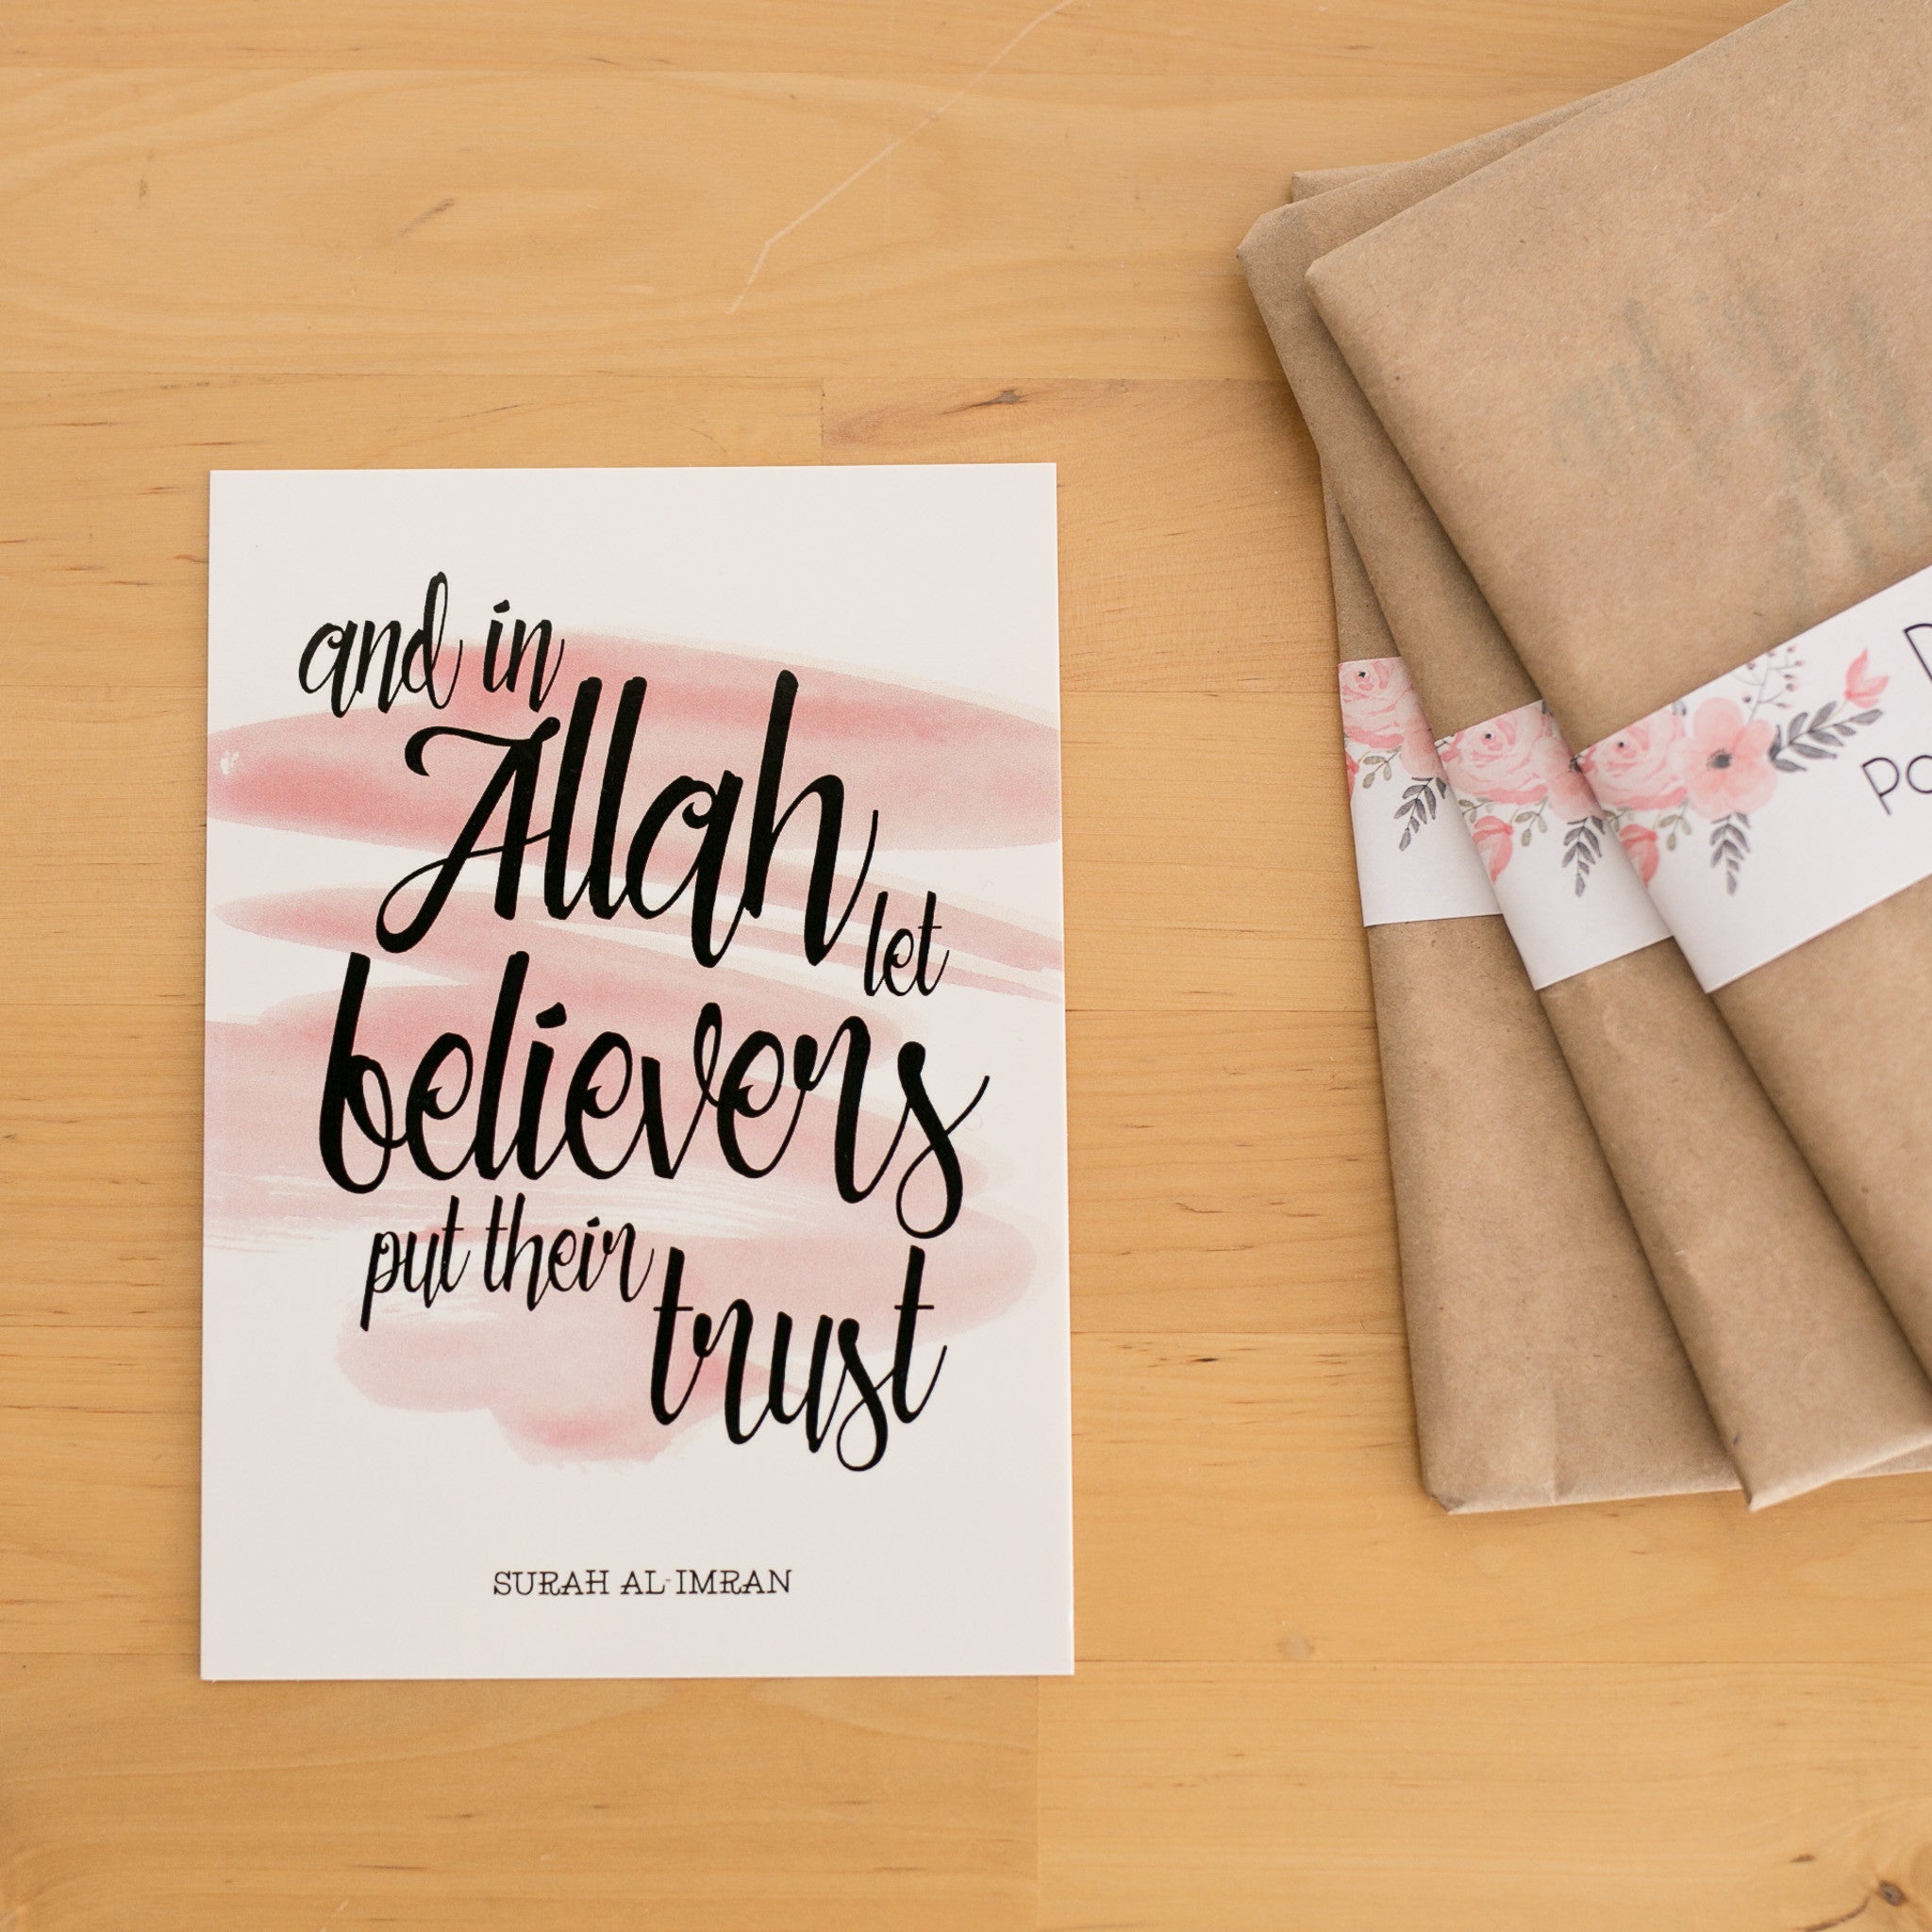 and in
Allah let
believers
put their
trust
SURAH AL-IMRAN